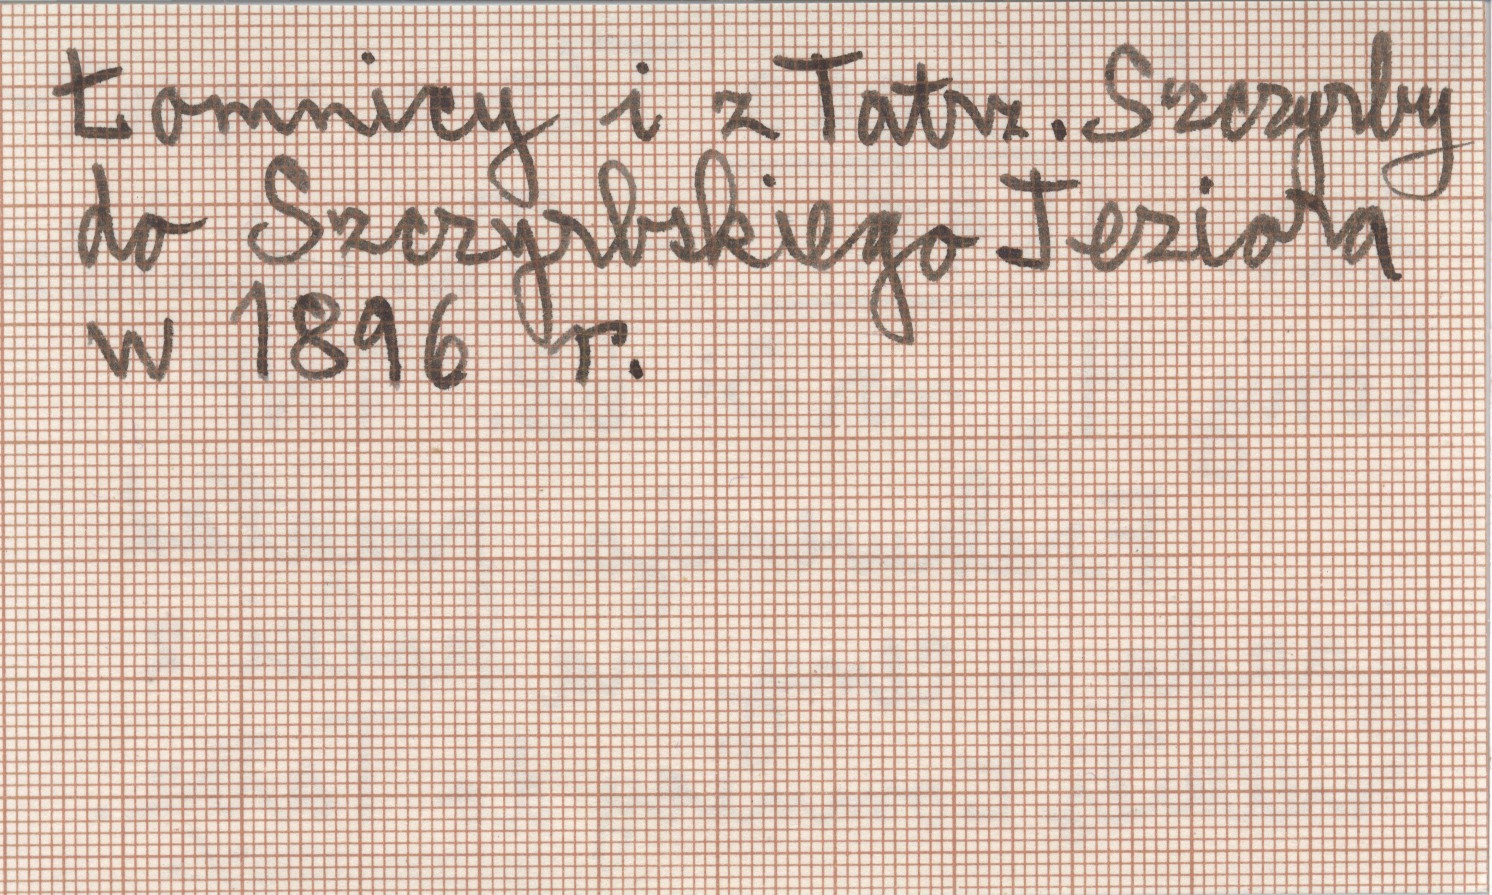 Łomnicy i z Tatrz. Szczyrby
do Szczyrbskiego Jeziora
w 1896 r.